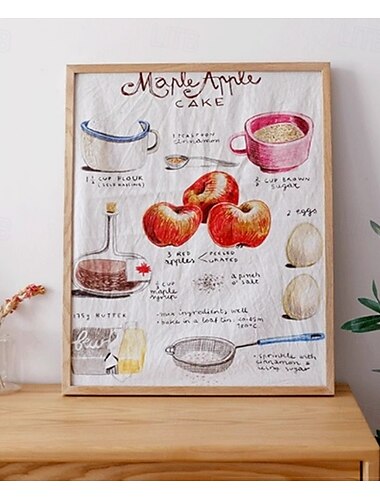 Maple Apple
CAKE
1 TEASPOON
cinnamon
1 ½ CUP FLOUR
(SELF RAISING)
CUP BROWN
sugar
2 eggs
3 RED
apples
PEELED
GRATED
CUP
maple
syrup
a pinch
o' salt
175g BUTTER
• mix ingredients well
• bake in a loaf tin
180°C
• sprinkle with
cinnamon &
icing sugar